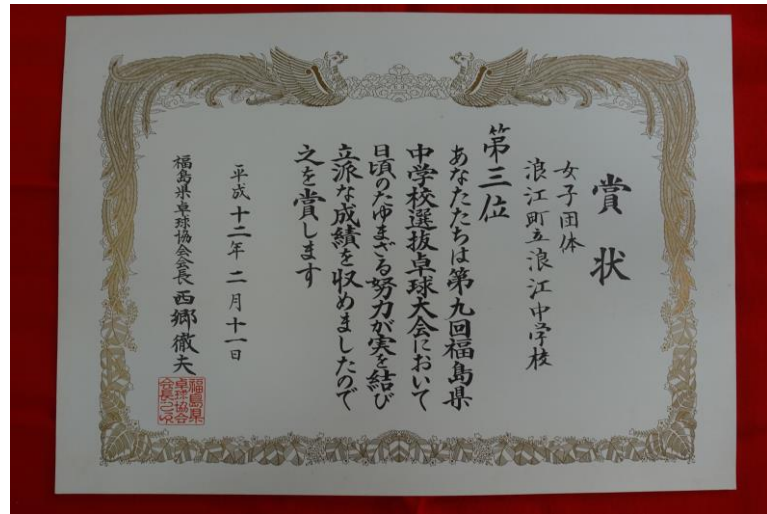 賞状
女子団体
浪江町立浪江中学校
第三位
あなたたちは第九回福島県
中学校選抜卓球大会において
日頃のたゆまざる努力が実を結び
立派な成績を収めましたので
之を賞します
平成十二年二月十一日
福島県卓球協会会長 西郷徹夫
福島県
卓球協会
会長之印